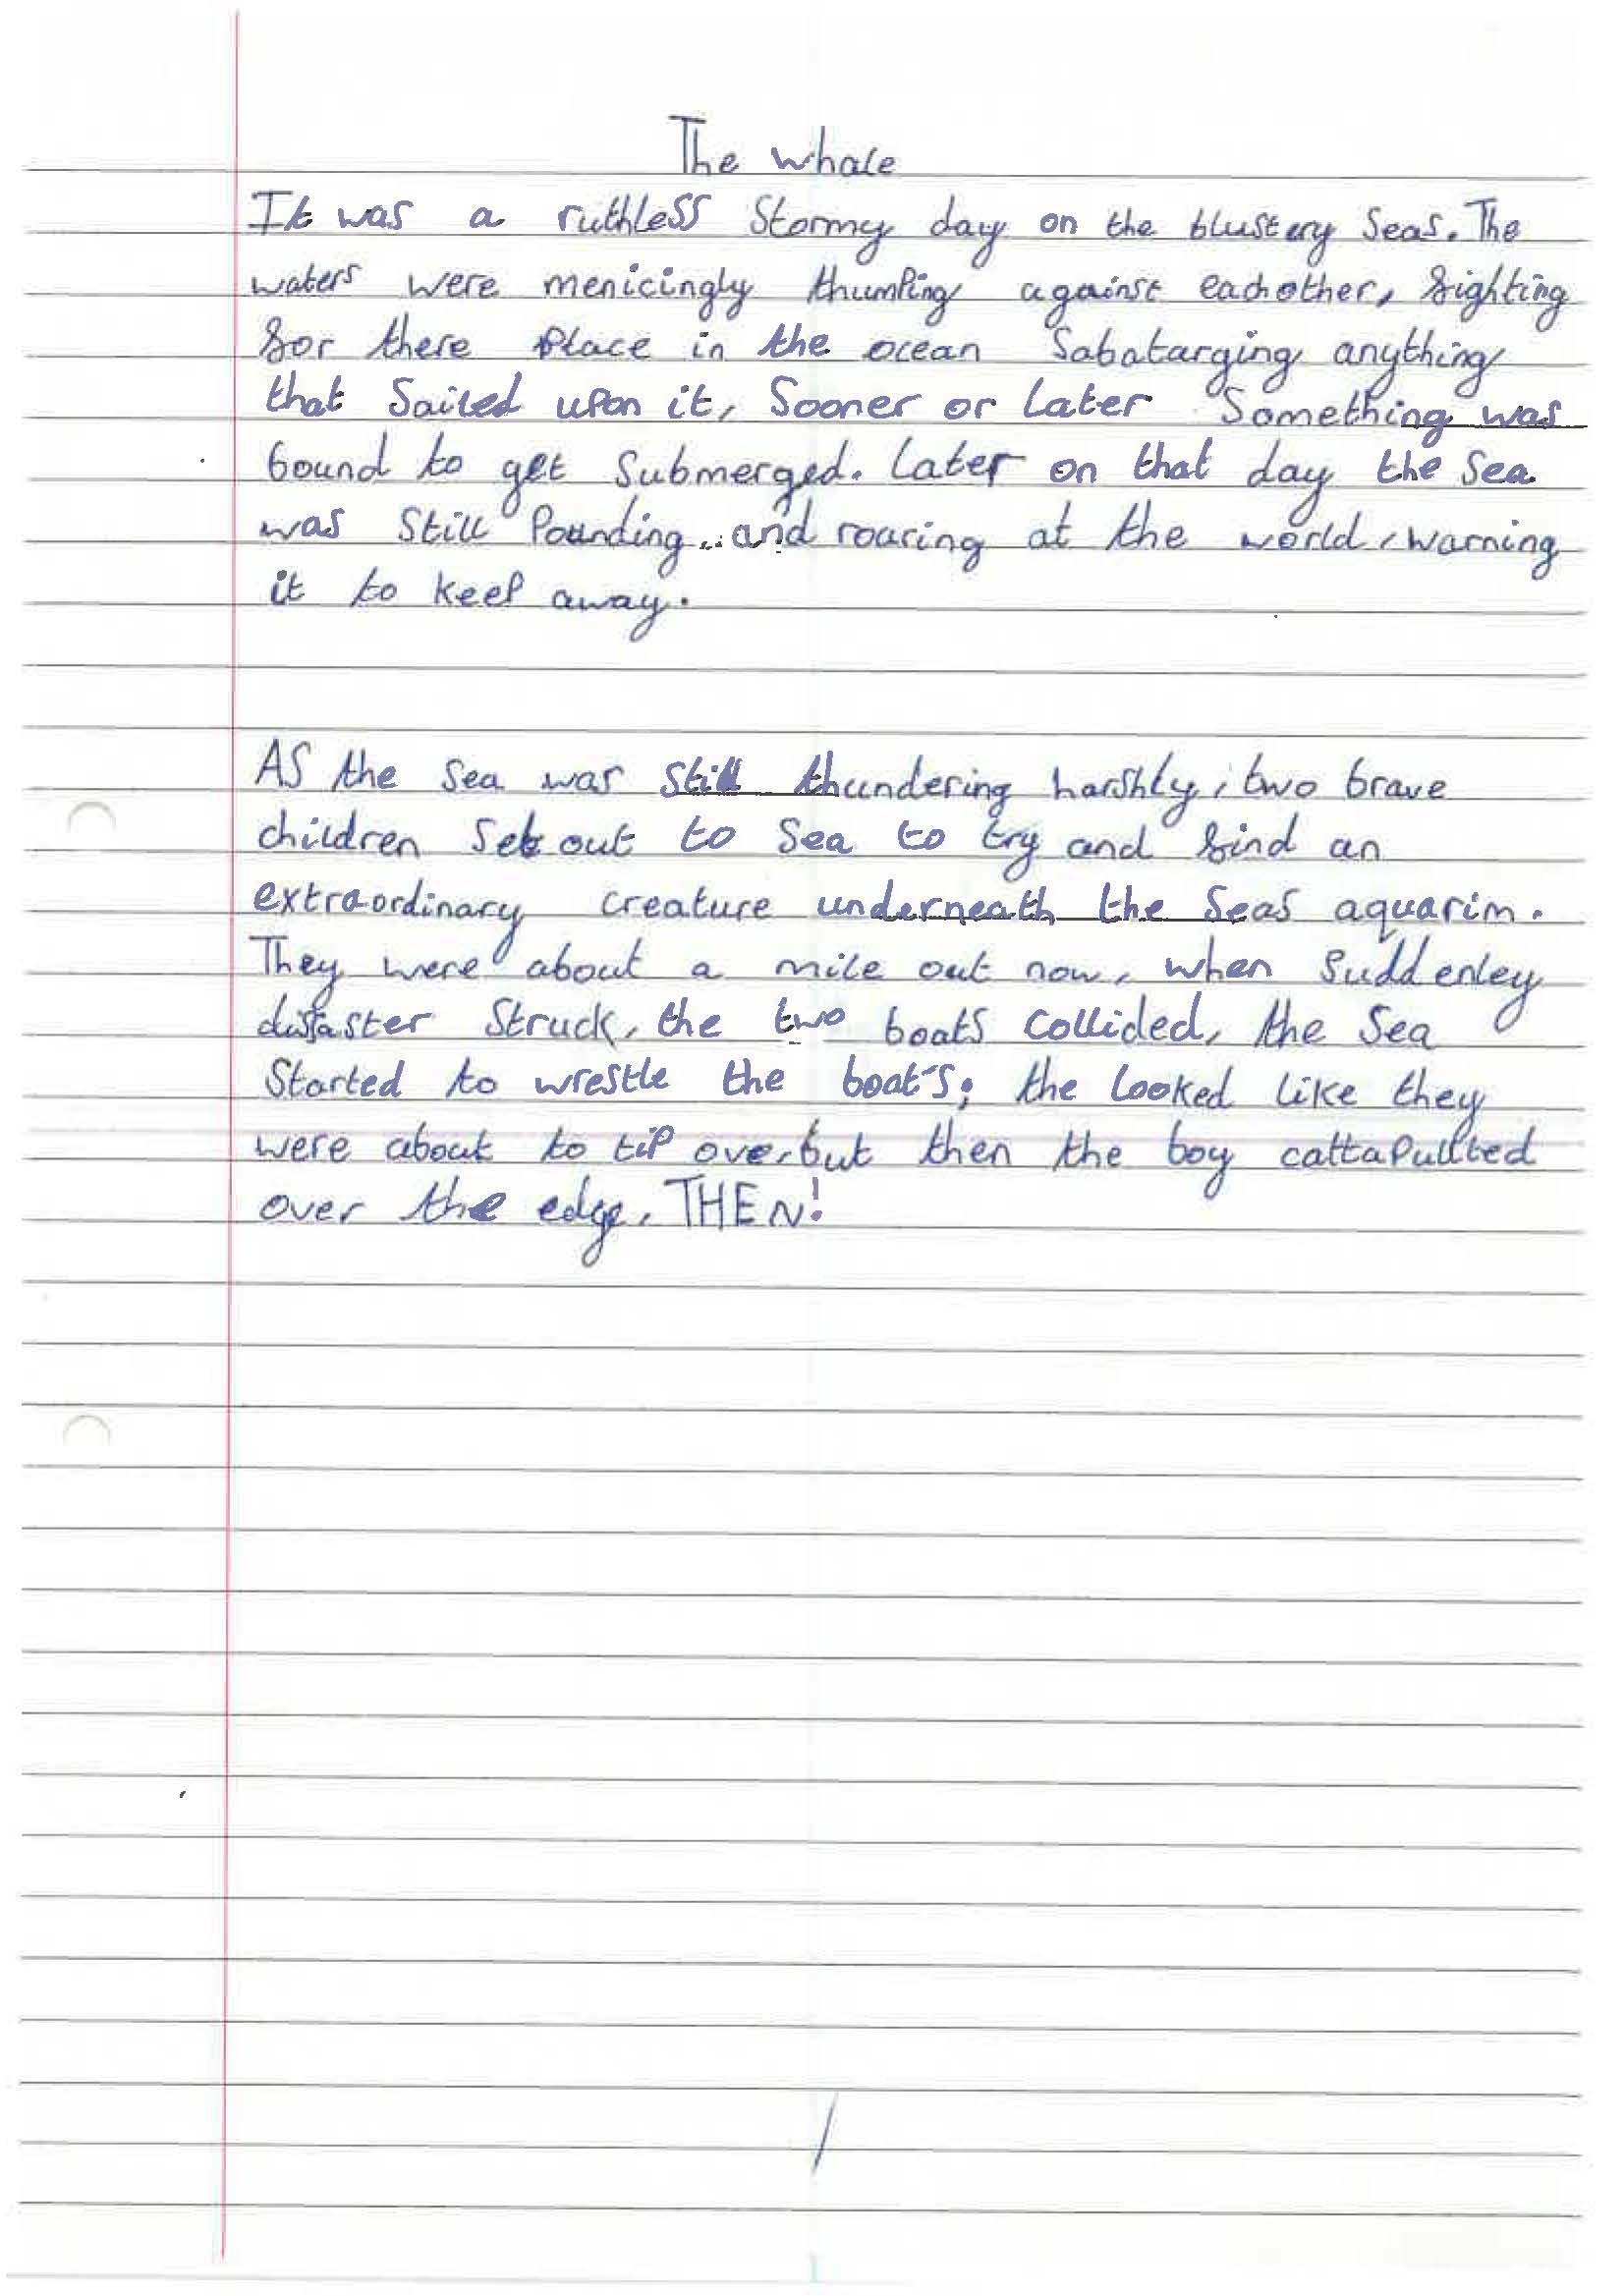 The whale
It was a ruthless stormy day on the blustery seas. The
waters were menicingly thumping against eachother, fighting
for there place in the ocean sabatarging anything
that sailed upon it, sooner or later something was
bound to get submerged. Later on that day the sea
was still pounding and roaring at the world, warning
it to keep away.
As the sea was still thundering harshly, two brave
children set out to sea to try and find an
extraordinary creature underneath the seas aquarim.
They were about a mile out now, when suddenley
disaster struck, the two boats collided, the sea
started to wrestle the boat's; the looked like they
were about to tip over but then the boy cattapullted
over the edge, THEN!